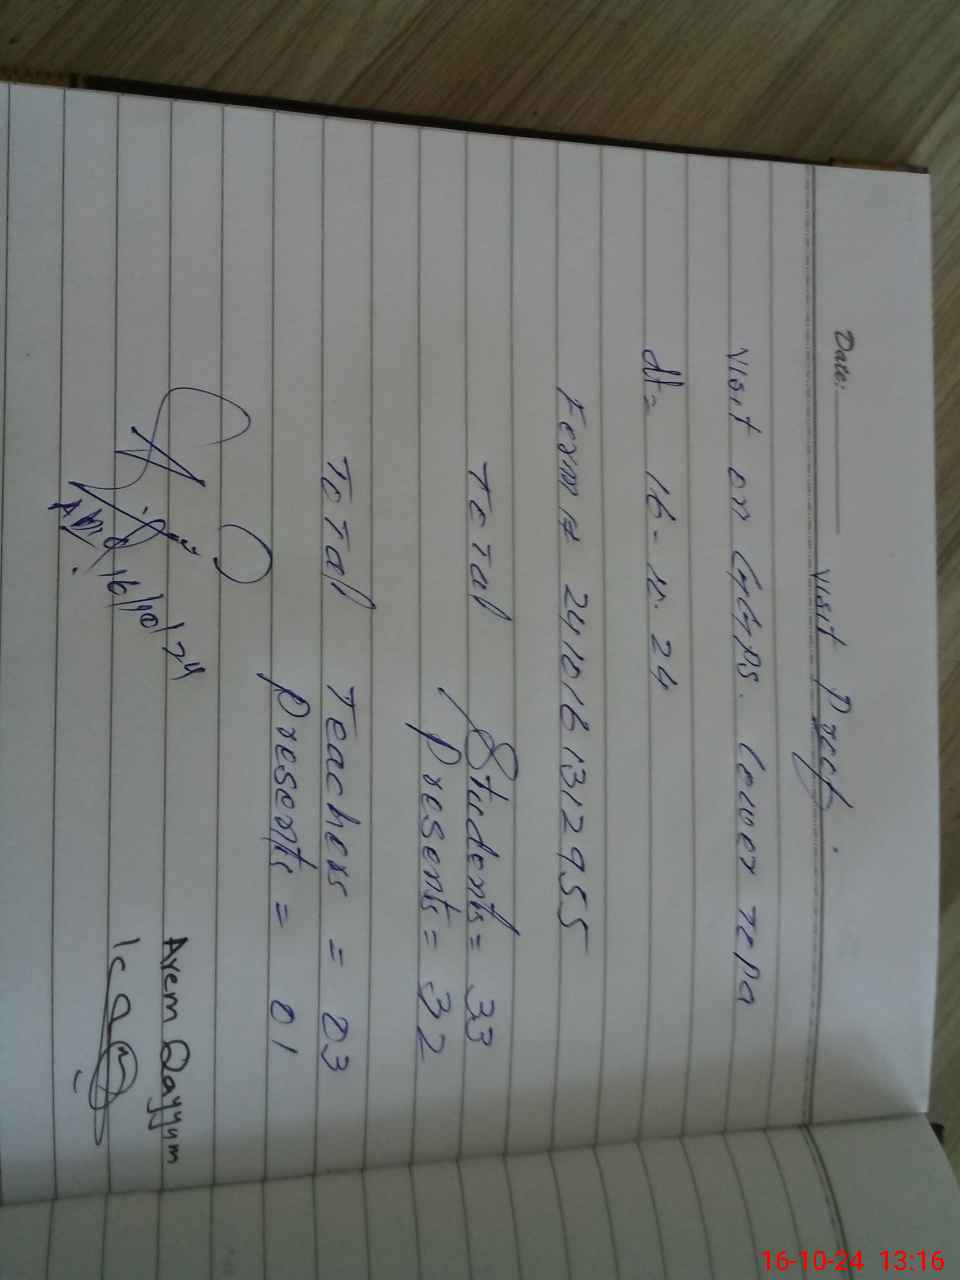 Date:
Visit Proof.
Visit on GGPS. Lower Topa
dt= 16-10-24
Form # 2410161312955
Total Students = 33
Presents = 32
Total Teachers = 03
Presents = 01
16/10/24
Arem Qayyum
16-10-24 13:16